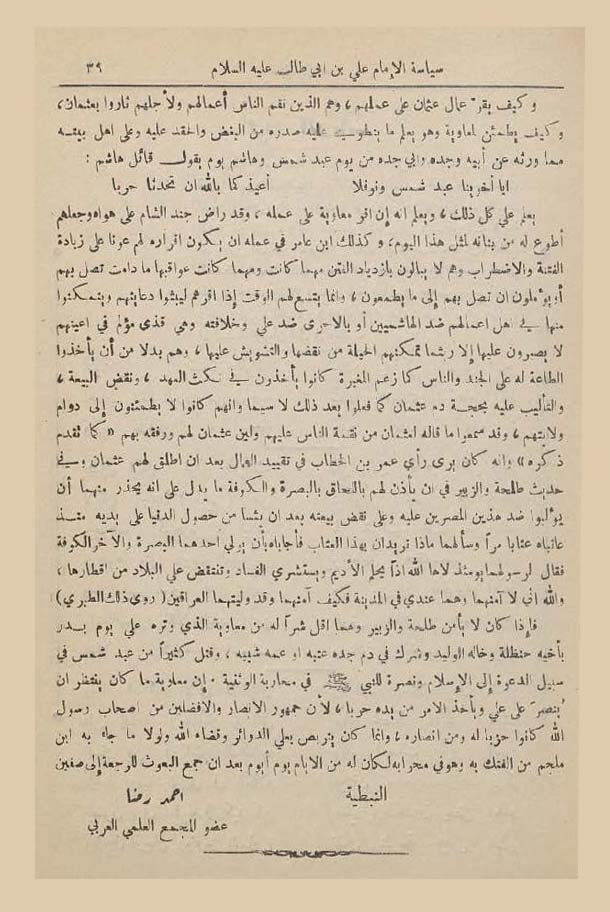 سياسة الإمام علي بن ابي طالب عليه السلام ٣٩
وكيف يقرّ عمال عثمان على عملهم، وهم الذين نقم الناس أعمالهم ولأجلهم ثاروا بعثمان،
وكيف يطمئن لمعاوية وهو يعلم ما ينطوي عليه صدره من البغض والحقد عليه وعلى اهل بيته
مما ورثه عن أبيه وجده وابي جده من يوم عبد شمس وهاشم يوم يقول قائل هاشم :
ايا أخوينا عبد شمس ونوفلا أعيذكما بالله ان تحدثا حربا
يعلم علي كل ذلك، ويعلم انه إن اقر معاوية على عمله، وقد راض جند الشام على هواه وجعلهم
أطوع له من بنانه لمثل هذا اليوم، وكذلك ابن عامر في عمله ان يكون اقراره لم عونا على زيادة
الفتنة والاضطراب وهم لا يبالون بازدياد الفتن مهما كانت ومهما كانت عواقبها ما دامت تصل بهم
أو يؤملون ان تصل بهم إلى ما يطمعون، وانما يتسع لهم الوقت إذا اقرهم ليبثوا دعايتهم ويتمكنوا
منها في اهل اعمالهم ضد الهاشميين أو بالاحرى ضد علي وخلافته وهي قذى مؤلم في اعينهم
لا يصبرون عليها إلا ريثما تمكنهم الحيلة من نقضها والتشويش عليها، وهم بدلا من أن يأخذوا
الطاعة له على الجند والناس كما زعم المغيرة كانوا يأخذون في نكث العهد، ونقض البيعة،
والتأليب عليه بحجة دم عثمان كما فعلوا بعد ذلك لا سيما وانهم كانوا لا يطمئنون إلى دوام
ولايتهم، وقد سمعوا ما قاله لعثمان من نقمة الناس عليهم ولين عثمان لهم ورفقه بهم «كما تقدم
ذكره» وانه كان يرى رأي عمر بن الخطاب في تقييد العمال بعد ان اطلق لهم عثمان وفي
حديث طلحة والزبير في ان يأذن لهم باللحاق بالبصرة والكوفة ما يدل على انه يحذر منهما أن
يؤلبوا ضد هذين المصرين عليه وعلى نقض بيعته بعد ان يئسا من حصول الدنيا على يديه منذ
عاتباه عتابا مراً وسألهما ماذا تريدان بهذا العتاب فأجاباه بأن يولي احدهما البصرة والآخر الكوفة
فقال لرسولهما يومئذ لاها الله اذاً يحلم الأديم ويستشري الفساد وتنتقض علي البلاد من اقطارها،
والله اني لا آمنهما وهما عندي في المدينة فكيف آمنهما وقد وليتهما العراقين (روى ذلك الطبري)
فإذا كان لا يأمن طلحة والزبير وهما اقل شراً له من معاوية الذي وتره علي يوم بدر
بأخيه حنظلة وخاله الوليد وشرك في دم جده عتبه او عمه شيبه، وقتل كثيراً من عبد شمس في
سبيل الدعوة إلى الإسلام ونصرة للنبي ﷺ في محاربة الوثنية. إن معاوية ما كان ينتظر ان
يُنصرَ على علي ويأخذ الامر من يده حربا، لأن جمهور الانصار والافضلين من اصحاب رسول
الله كانوا حزبا له ومن انصاره، وانما كان يتربص بعلي الدوائر وقضاء الله ولولا ما جاء به ابن
ملجم من الفتك به وهو في محرابه لكان له من الايام يوم أيوم بعد ان جمع البعوث للرجعة إلى صفين
النبطية احمد رضا
عضو المجمع العلمي العربي